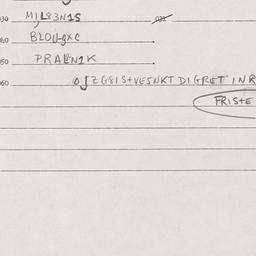 030 MJL83N1S 031
040 BLOU9XC
050 PRALEN1K
060 OJZG8IS+VESNKT DIGRET INR
FRISTE